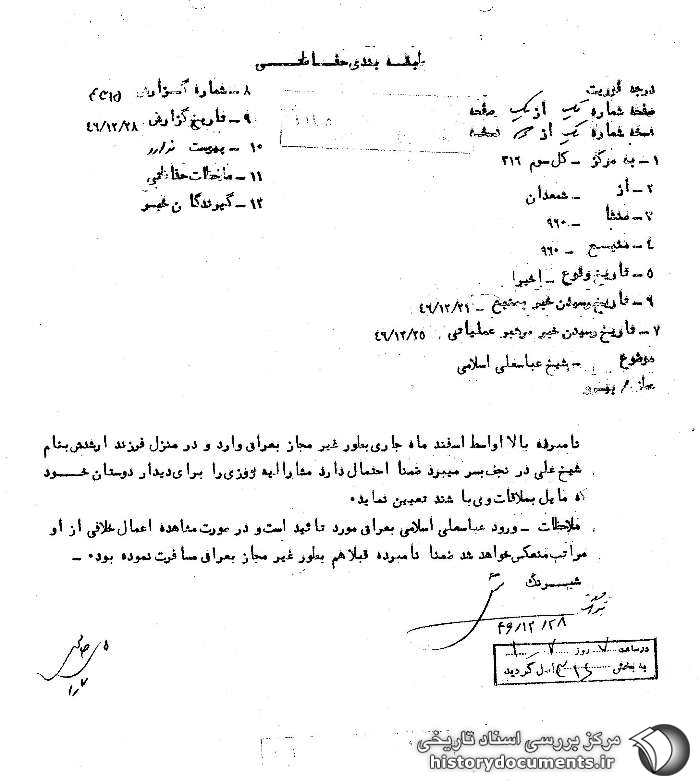 طبقه بندی حفاظتی
درجه فوریت
صفحه شماره یک از یک صفحه
نسخه شماره یک از نسخه
۱ - به مرکز - کل سوم ۳۱۶
۲ - از - شمعدان
۳ - منشأ - ۹۶۰
۴ - منبع - ۹۶۰
۵ - تاریخ وقوع - اخیرا
۶ - تاریخ رسیدن خبر بمنبع - ۴۶/۱۲/۲۱
۷ - تاریخ رسیدن خبر برهبر عملیاتی ۴۶/۱۲/۲۵
موضوع - شیخ عباسعلی اسلامی
۸ - شماره گزارش
۹ - تاریخ گزارش ۴۶/۱۲/۲۸
۱۰ - پیوست ندارد
۱۱ - ملاحظات حفاظتی
۱۲ - گیرندگان خبر
نامبرده بالا اواسط اسفند ماه جاری بطور غیر مجاز بعراق وارد و در منزل فرزند ارشدش بنام
شیخ علی در نجف بسر میبرد ضمنا احتمال دارد مشارالیه روزی را برای دیدار دوستان خود
که مایل بملاقات وی باشند تعیین نماید.
ملاحظات - ورود عباسعلی اسلامی بعراق مورد تائید است و در صورت مشاهده اعمال خلافی از او
مراتب منعکس خواهد شد ضمنا نامبرده قبلا هم بطور غیر مجاز بعراق مسافرت نموده بود. -
شبرنگ
۴۶/۱۲/۲۸
در ساعت روز
به بخش ۳۱۶ ارسال گردید
مرکز بررسی اسناد تاریخی
historydocuments.ir